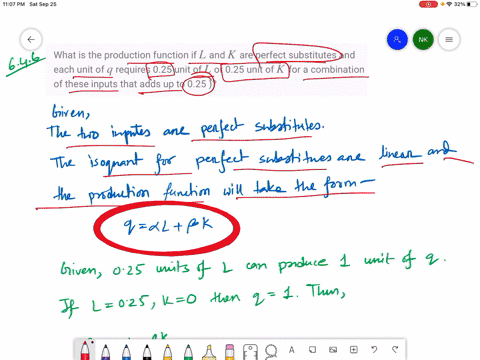 11:07 PM Sat Sep 25
32%
NK
6.4.6
What is the production function if L and K are perfect substitutes and
each unit of q requires 0.25 unit of L or 0.25 unit of K (or a combination
of these inputs that adds up to 0.25)?
Given,
The two inputes are perfect substitutes.
The isoquant for perfect substitues are linear and
the production function will take the form —
q = αL + βK
Given, 0.25 units of L can produce 1 unit of q.
If L = 0.25, K = 0 then q = 1. Thus,